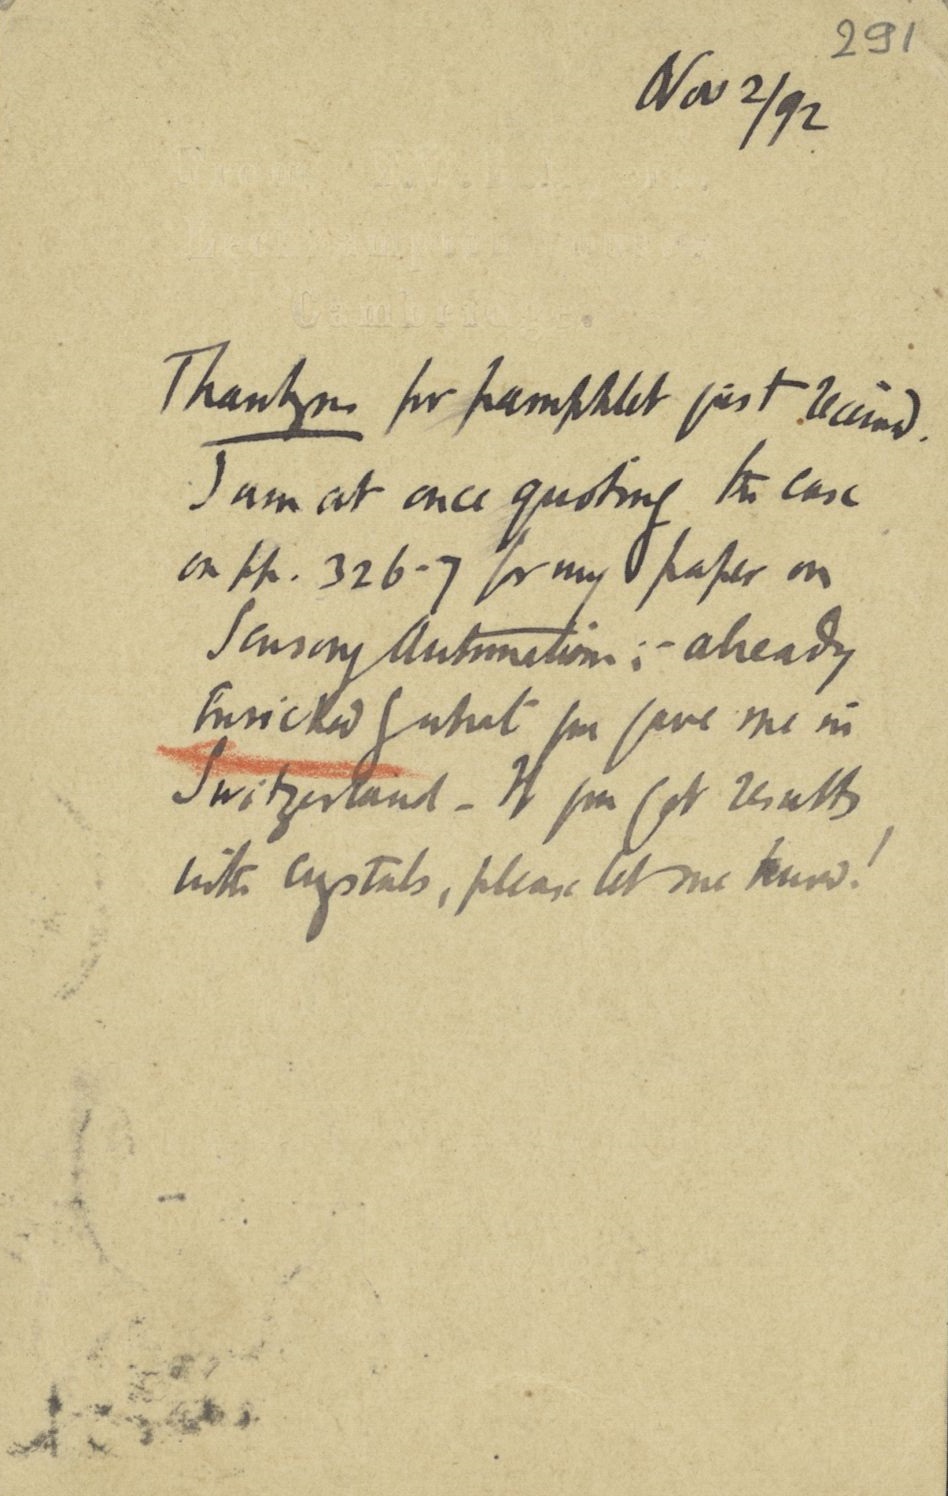 291
Nov 2/92
From F.W.H.
Cambridge.
Thank you for pamphlet just received.
I am at once quoting the case
on pp. 326-7 for my paper on
Sensory Automatism; - already
enriched by what you gave me in
Switzerland - If you get results
with crystals, please let me know!